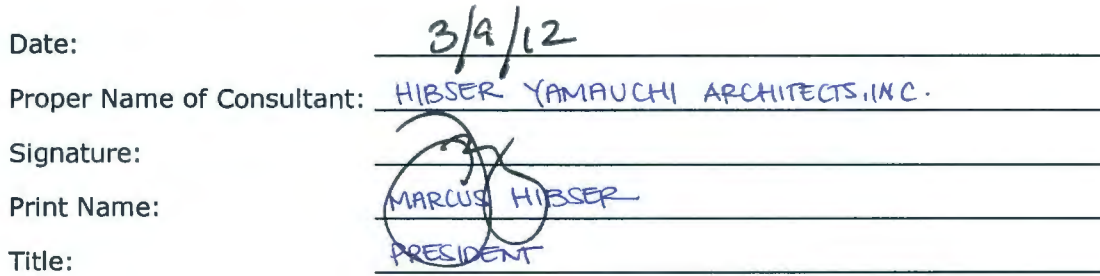 Date: 3/9/12
Proper Name of Consultant: HIBSER YAMAUCHI ARCHITECTS, INC.
Signature:
Print Name: MARCUS HIBSER
Title: PRESIDENT